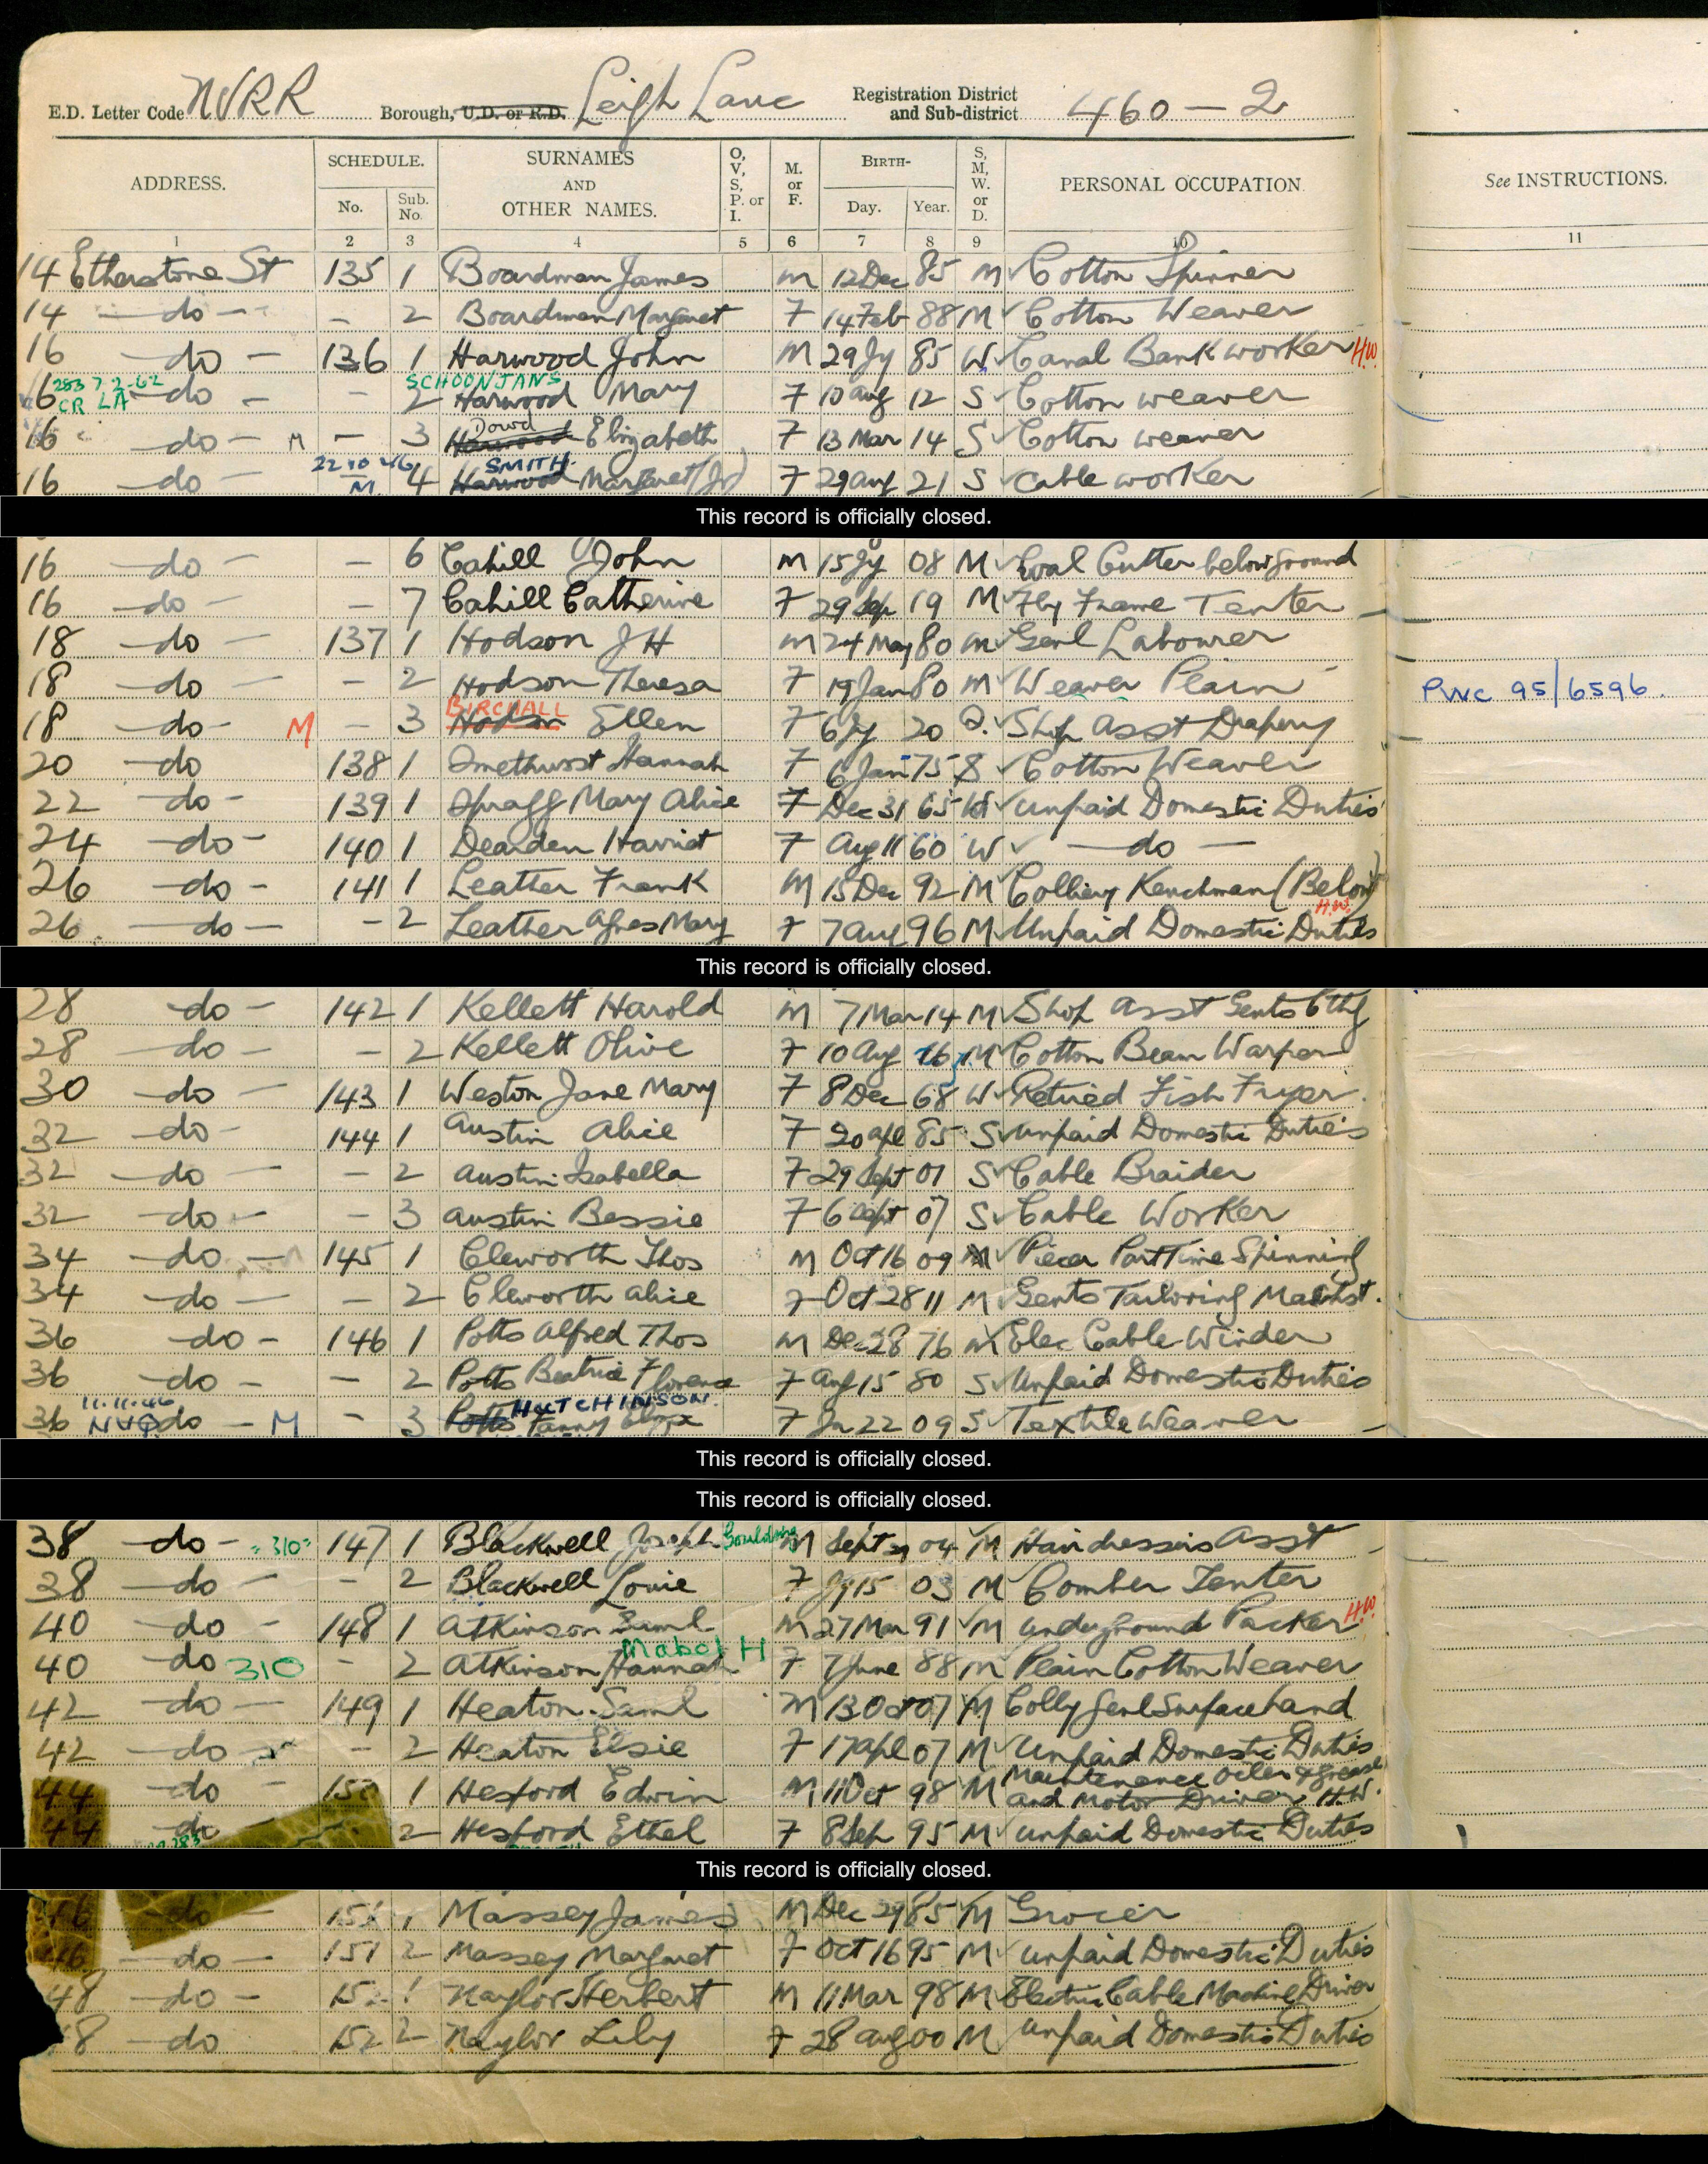 E.D. Letter Code NVRR Borough, U.D. or R.D. Leigh Lanc Registration District and Sub-district 460 — 2
ADDRESS. SCHEDULE. No. Sub. No. SURNAMES AND OTHER NAMES. O, V, S, P. or I. M. or F. BIRTH- Day. Year. S, M, W. or D. PERSONAL OCCUPATION See INSTRUCTIONS.
1 2 3 4 5 6 7 8 9 10 11
14 Etherstone St 135 1 Boardman James M 12 Dec 85 M Cotton Spinner
14 — do — – 2 Boardman Margaret F 14 Feb 88 M Cotton Weaver
16 — do — 136 1 Harwood John M 29 Jy 85 W Canal Bank worker H.W.
283 7-2-62 CR LA SCHOONJANS
16 — do — – 2 Harwood Mary F 10 Aug 12 S Cotton weaver
Dowd
16 — do — M – 3 Harwood Elizabeth F 13 Mar 14 S Cotton weaver
22 10 46 M. SMITH
16 — do — 4 Harwood Margaret (Jr) F 29 Aug 21 S Cable worker
This record is officially closed.
16 — do — – 6 Cahill John M 15 Jy 08 M Coal Cutter below ground
16 — do — – 7 Cahill Catherine F 29 Sep 19 M Fly Frame Tenter
18 — do — 137 1 Hodson J H M 24 May 80 M Genl Labourer
18 — do — – 2 Hodson Theresa F 19 Jan 80 M Weaver Plain PWC 95/6596
BIRCHALL
18 — do — M – 3 Hodson Ellen F 6 Jy 20 S. Shop Asst Drapery
20 — do 138 1 Smethurst Hannah F 6 Jan 75 S Cotton Weaver
22 — do — 139 1 Spragg Mary Alice F Dec 31 65 W Unpaid Domestic Duties
24 — do — 140 1 Dearden Harriet F Aug 11 60 W — do —
26 — do — 141 1 Leather Frank M 15 Dec 92 M Colliery Kenchman (Below) H.W.
26 — do — – 2 Leather Agnes Mary F 7 Aug 96 M Unpaid Domestic Duties
This record is officially closed.
28 — do — 142 1 Kellett Harold M 7 Mar 14 M Shop Asst Gents Cthg
28 — do — – 2 Kellett Olive F 10 Aug 16 M Cotton Beam Warper
30 — do — 143 1 Weston Jane Mary F 8 Dec 68 W Retired Fish Fryer.
32 — do — 144 1 Austin Alice F 20 Apl 85 S Unpaid Domestic Duties
32 — do — – 2 Austin Isabella F 29 Sept 01 S Cable Braider
32 — do — – 3 Austin Bessie F 6 Sept 07 S Cable Worker
34 — do — 145 1 Cleworth Thos M Oct 16 09 M Piecer Part Time Spinning
34 — do — – 2 Cleworth Alice F Oct 28 11 M Gents Tailoring Machst.
36 — do — 146 1 Potts Alfred Thos M Dec 28 76 M Elec Cable Winder
36 — do — – 2 Potts Beatrice Florence F Aug 15 80 S Unpaid Domestic Duties
11.11.46 HUTCHINSON
36 do — M – 3 Potts Fanny F Jn 22 09 S Textile Weaver
This record is officially closed.
This record is officially closed.
38 — do — =310= 147 1 Blackwell Joseph Goulding M Sept 04 M Hairdressers Asst
38 — do — – 2 Blackwell Louie F Jy 15 03 M Comber Tenter
40 — do — 148 1 Atkinson Saml M 27 Mar 91 M Underground Packer H.W.
Mabel H
40 — do 310 – 2 Atkinson Hannah F 7 June 88 M Plain Cotton Weaver
42 — do — 149 1 Heaton Saml M 13 Oct 07 M Colly Genl Surface hand
42 — do — – 2 Heaton Elsie F 17 Apl 07 M Unpaid Domestic Duties
44 — do — 150 1 Hesford Edwin M 11 Oct 98 M Maintenance Oiler & Greaser
and Motor Driver H.W.
44 do 2 Hesford Ethel F 8 Sep 95 M Unpaid Domestic Duties
This record is officially closed.
46 do 151 1 Massey James M Dec 29 85 M Grocer
46 — do — 151 2 Massey Margaret F Oct 16 95 M Unpaid Domestic Duties
48 — do — 152 1 Naylor Herbert M 11 Mar 98 M Electric Cable Machine Driver
8 — do 152 2 Naylor Lily F 28 Aug 00 M Unpaid Domestic Duties